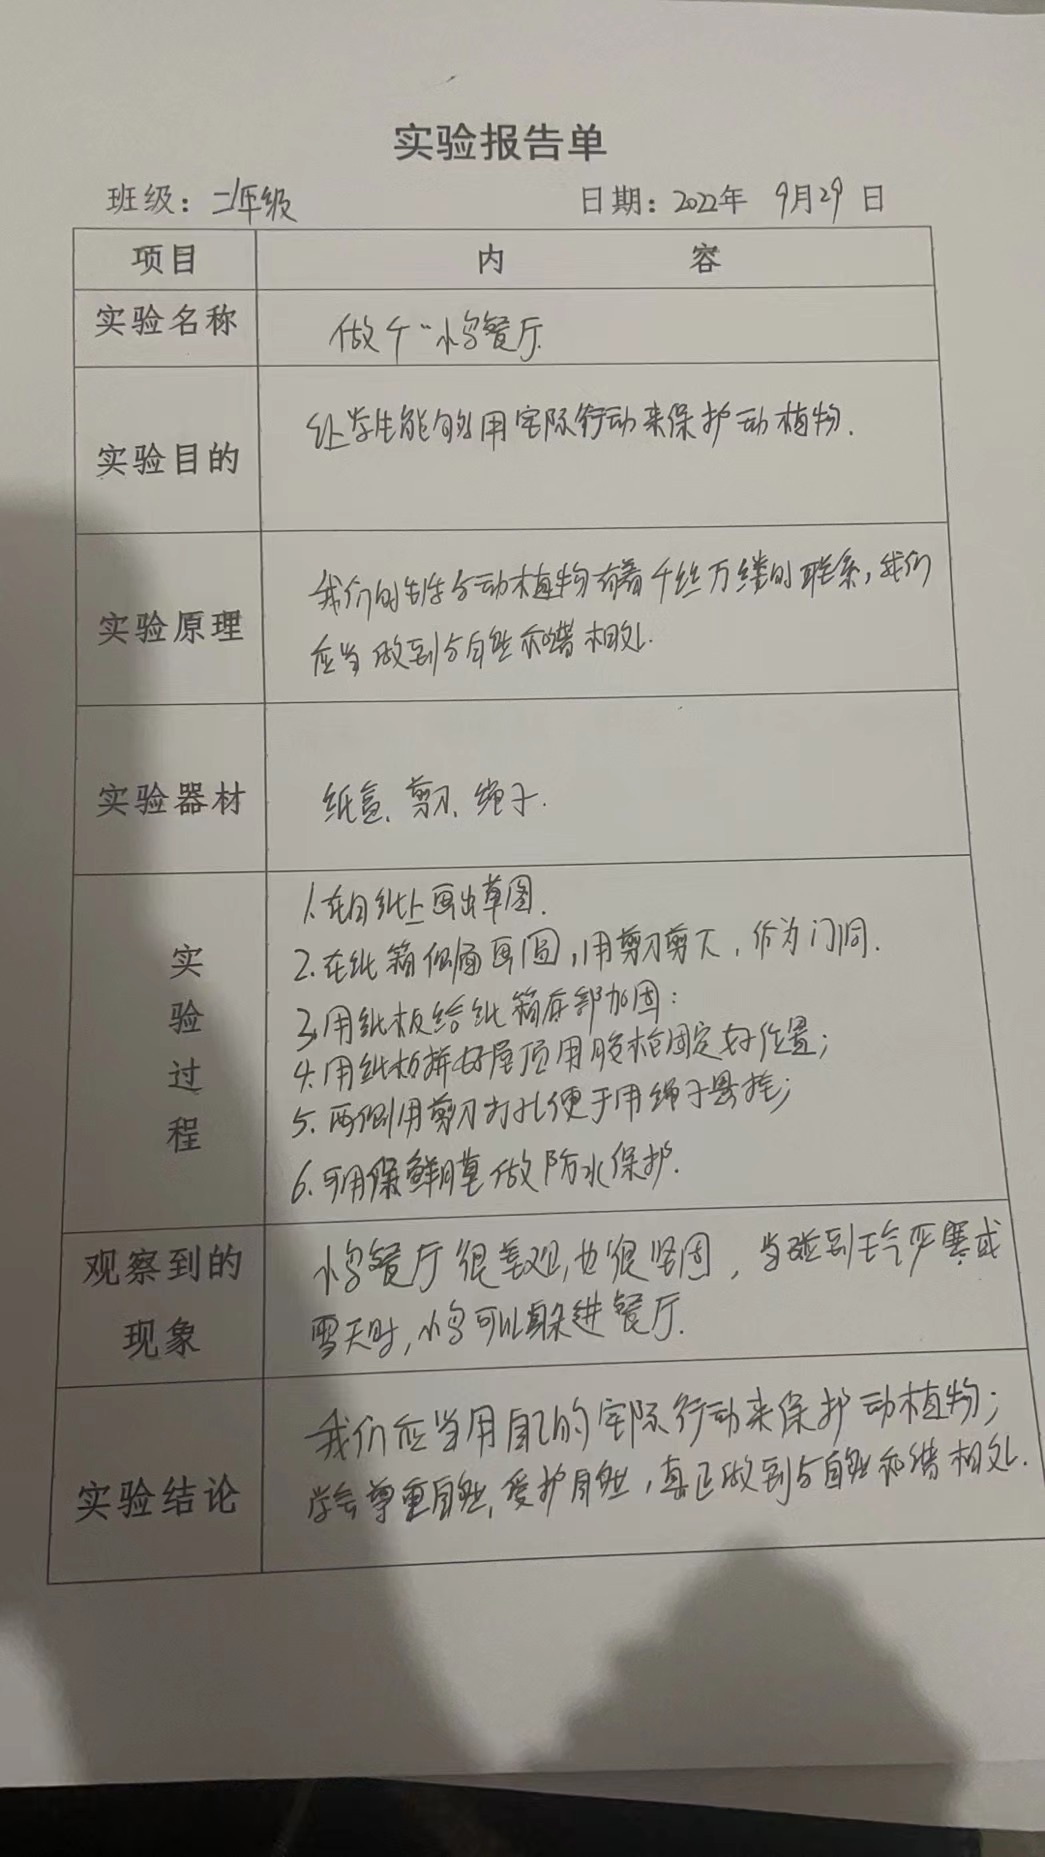 实验报告单
班级：二年级 日期：2022年 9月29日
项目 内 容
实验名称 做个“小鸟餐厅
实验目的 让学生能够用实际行动来保护动植物.
我们的生活与动植物有着千丝万缕的联系，我们
实验原理 应当做到与自然和谐相处.
实验器材 纸盒、剪刀、绳子.
实验过程
1.在白纸上画出草图.
2.在纸箱侧面画圆，用剪刀剪下，作为门洞.
3.用纸板给纸箱底部加固；
4.用纸板拼好屋顶用胶枪固定好位置；
5.两侧用剪刀打孔便于用绳子悬挂；
6.可用保鲜膜做防水保护.
观察到的现象
小鸟餐厅很美观，也很坚固，当碰到天气严寒或
雪天时，小鸟可以躲进餐厅.
实验结论
我们应当用自己的实际行动来保护动植物；
学会尊重自然、爱护自然，真正做到与自然和谐相处.